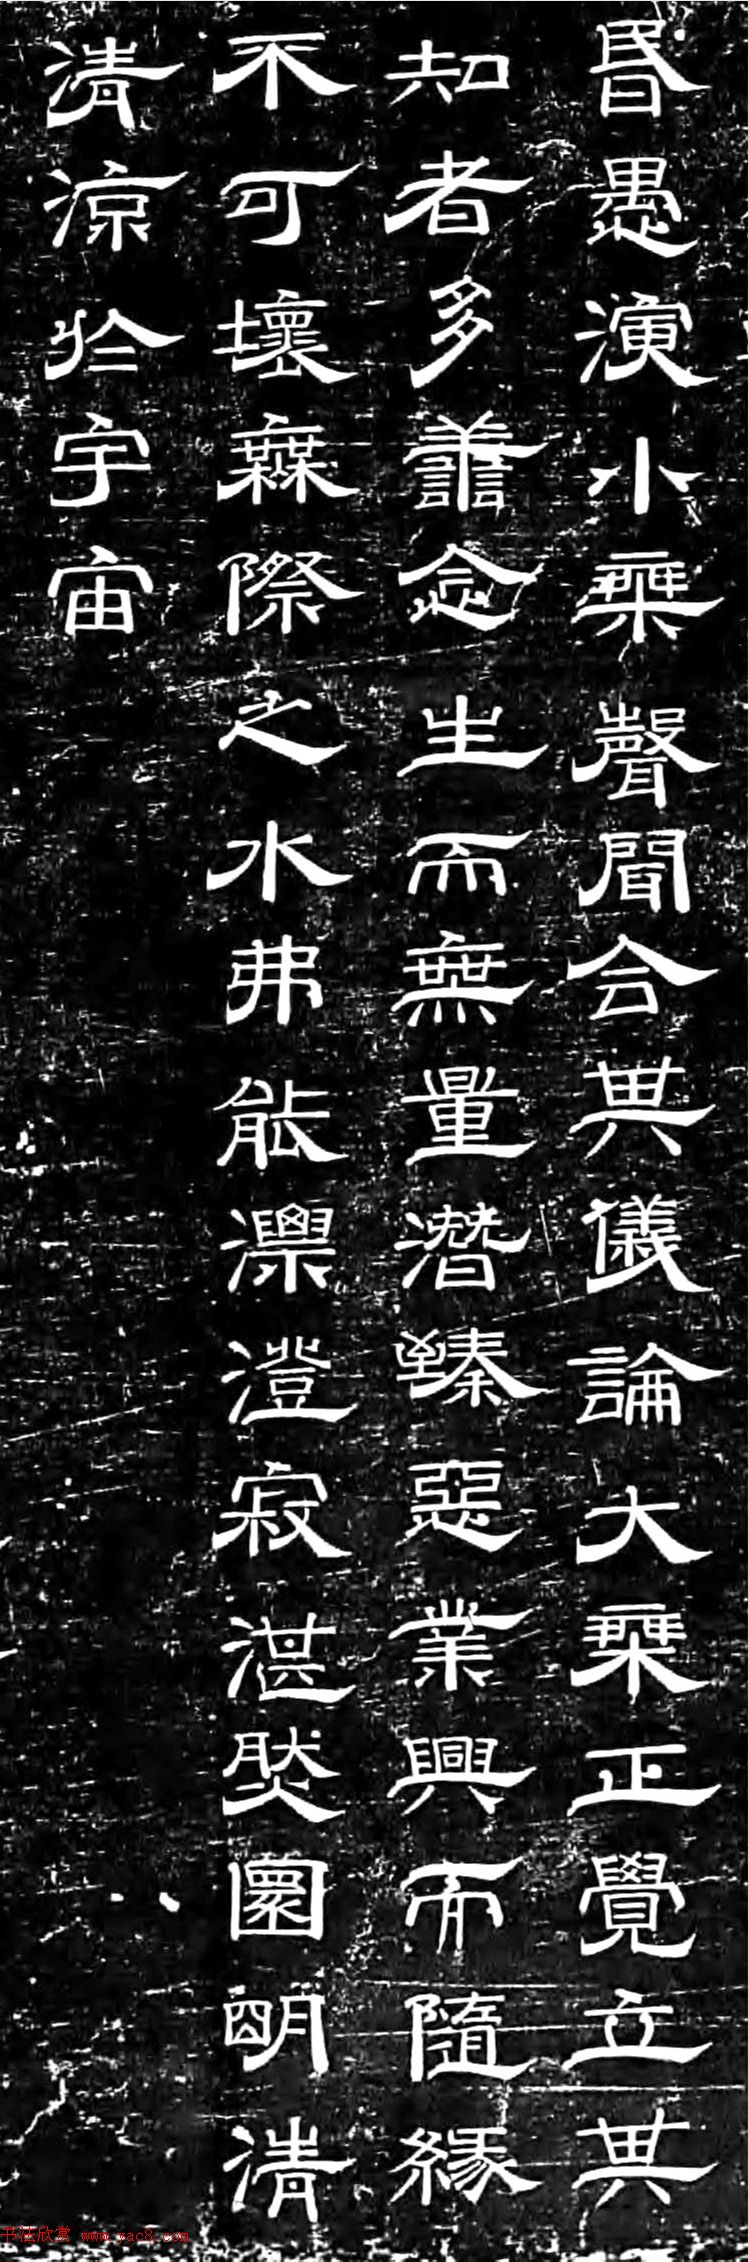 昏愚演小乗聲聞令其儀論大乗正覺立其
知者多善念生而無量潛臻惡業興而隨縁
不可壞無際之水弗能澡澄寂湛然圓明清
清涼於宇宙
书法欣赏 www.yac8.com